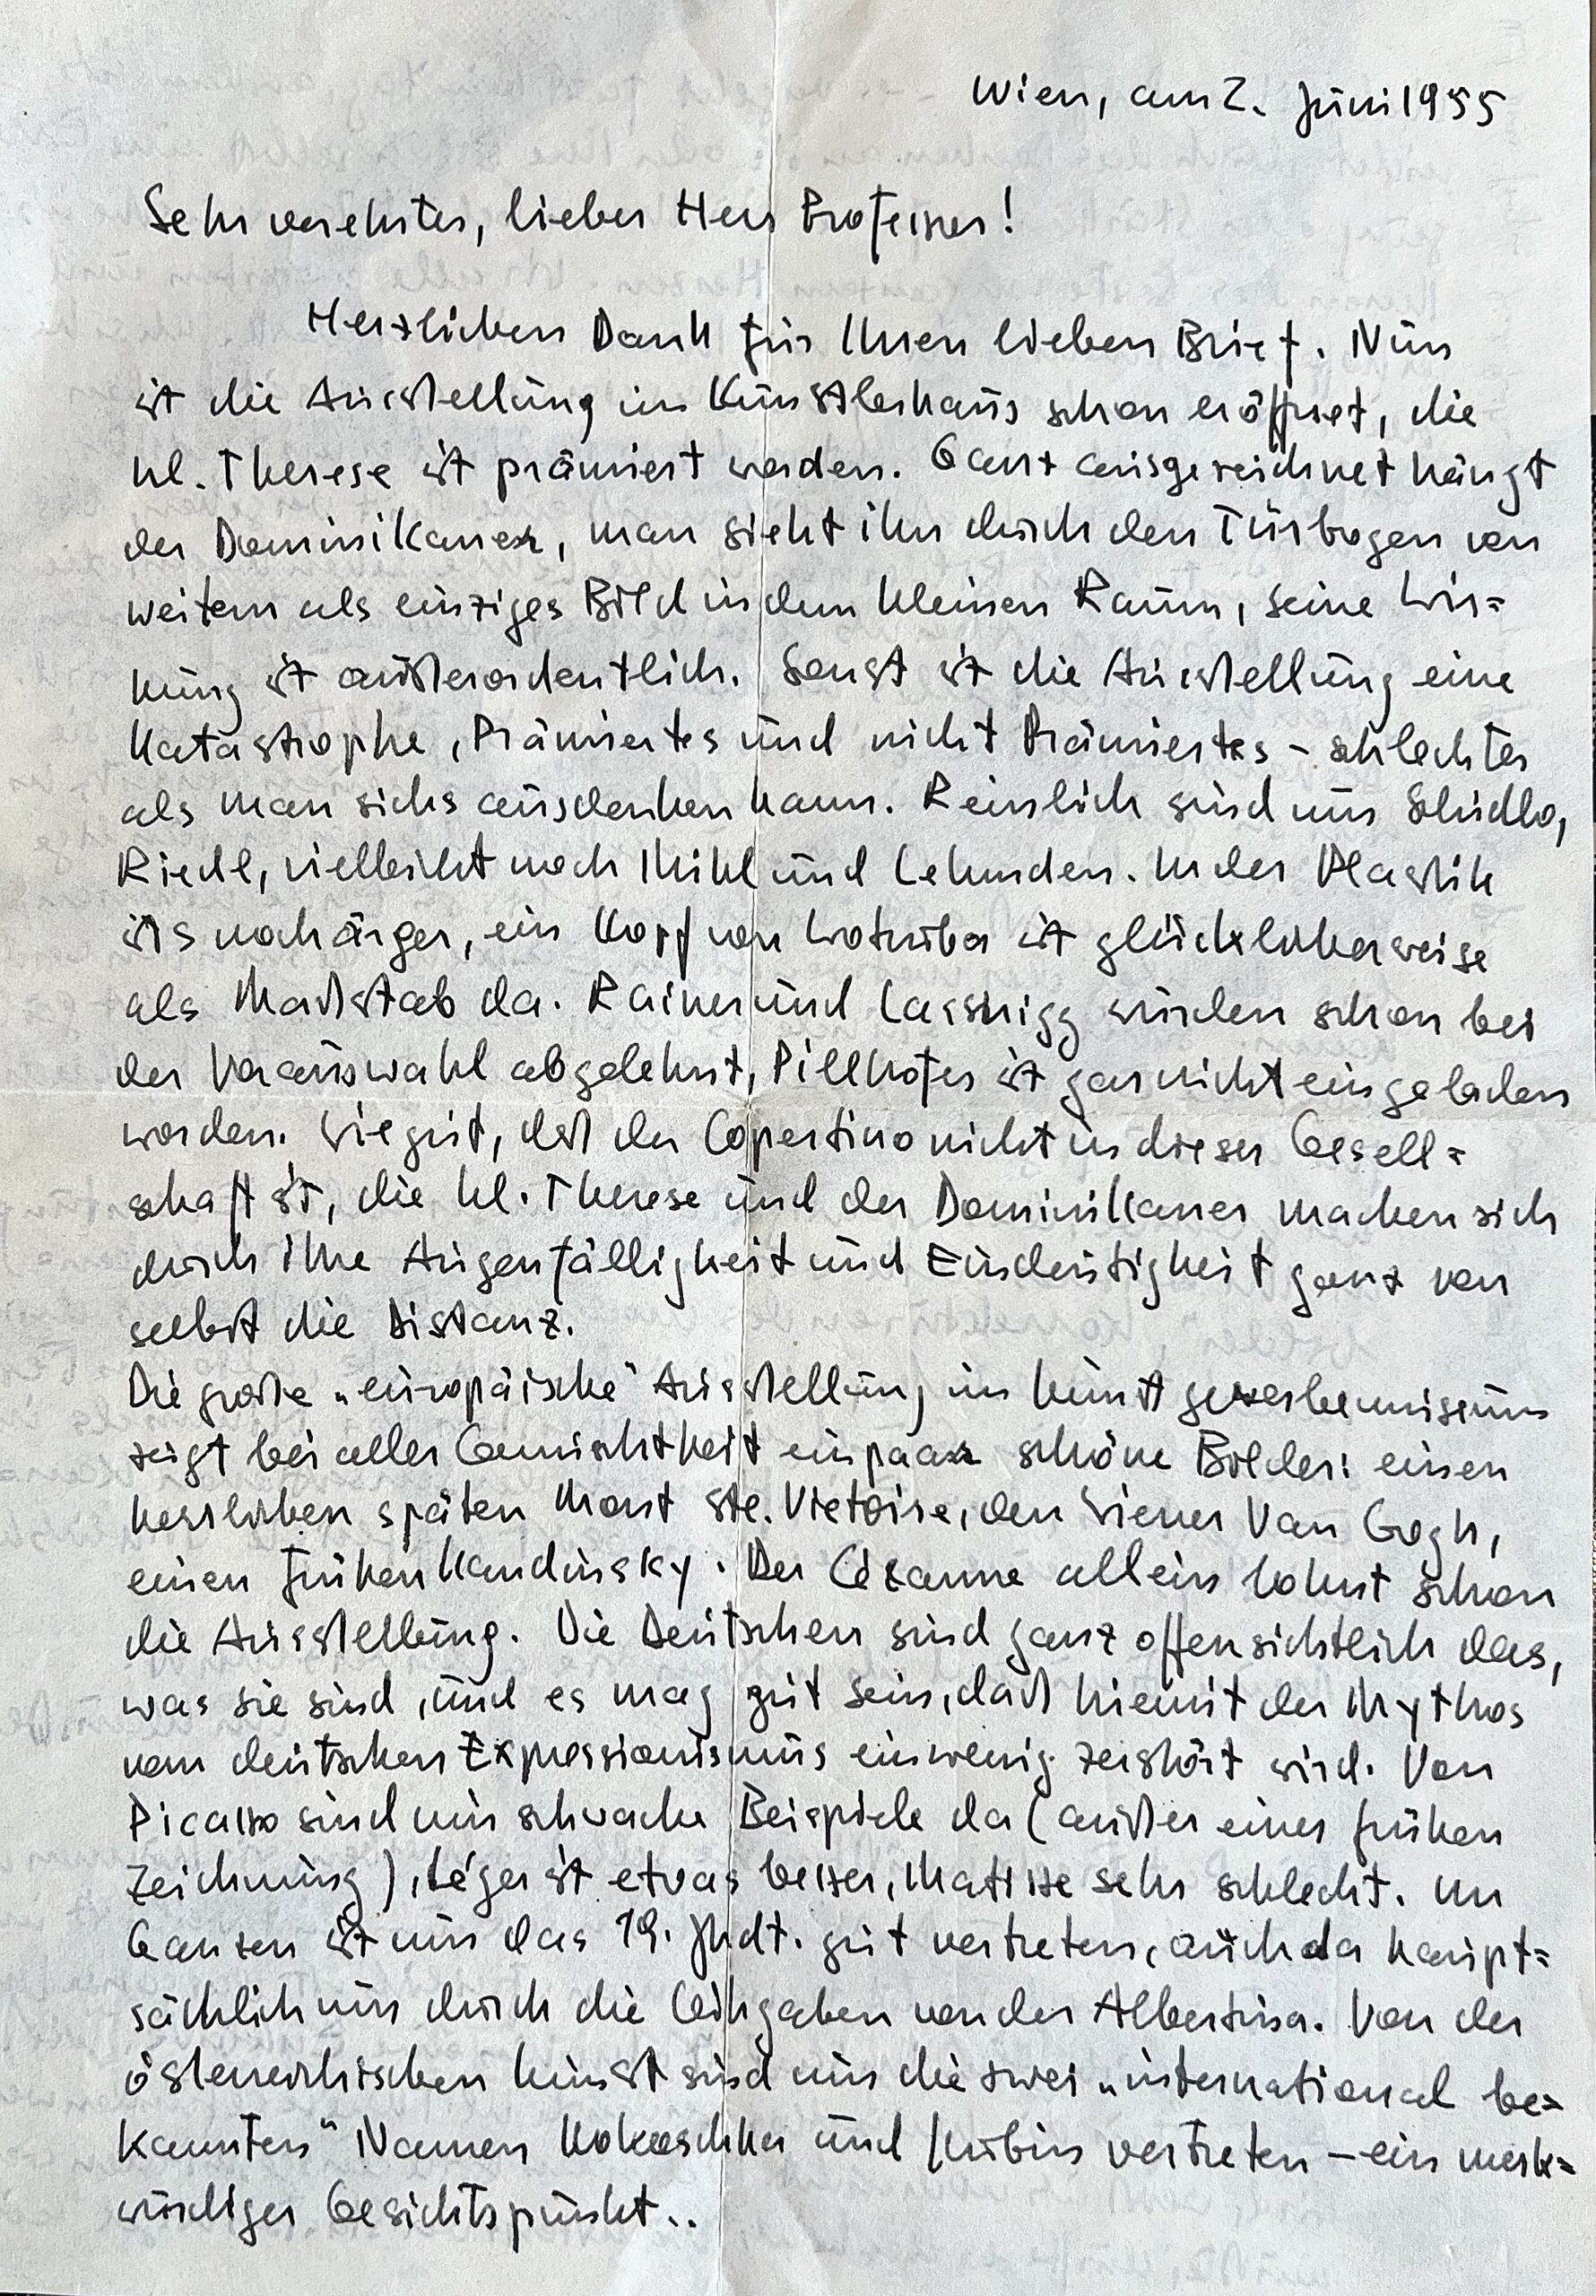 Wien, am 2. Juni 1955
Sehr verehrter, lieber Herr Professor!
Herzlichen Dank für Ihren lieben Brief. Nun
ist die Ausstellung im Künstlerhaus schon eröffnet, die
hl. Therese ist prämiert worden. Ganz ausgezeichnet hängt
der Dominikaner, man sieht ihn durch den Türbogen von
weitem als einziges Bild in dem kleinen Raum, seine Wir=
kung ist außerordentlich. Sonst ist die Ausstellung eine
Katastrophe, Prämiertes und nicht Prämiertes – schlechter
als man sichs ausdenken kann. Reinlich sind nur Schidlo,
Riedl, vielleicht noch Mikl und Lehmden. In der Plastik
ists noch ärger, ein Kopf von Wotruba ist glücklicherweise
als Maßstab da. Rainer und Lassnigg wurden schon bei
der Vorauswahl abgelehnt, Pillhofer ist gar nicht eingeladen
worden. Wie gut, daß der Copertino nicht in dieser Gesell=
schaft ist, die hl. Therese und der Dominikaner machen sich
durch ihre Augenfälligkeit und Eindeutigkeit ganz von
selbst die Distanz.
Die große „europäische" Ausstellung im Kunstgewerbemuseum
zeigt bei aller Gemischtheit ein paar schöne Bilder: einen
herrlichen späten Mont Ste. Victoire, den Wiener Van Gogh,
einen frühen Kandinsky. Der Cézanne allein lohnt schon
die Ausstellung. Die Deutschen sind ganz offensichtlich das,
was sie sind, und es mag gut sein, daß hiemit der Mythos
vom deutschen Expressionismus ein wenig zerstört wird. Von
Picasso sind nur schwache Beispiele da (außer einer frühen
Zeichnung), Léger ist etwas besser, Matisse sehr schlecht. Im
Ganzen ist nur das 19. Jhdt. gut vertreten, auch da haupt=
sächlich nur durch die Leihgaben von der Albertina. Von der
österreichischen Kunst sind nur die zwei „international be=
kannten" Namen Kokoschka und Kubin vertreten – ein merk=
würdiger Gesichtspunkt..